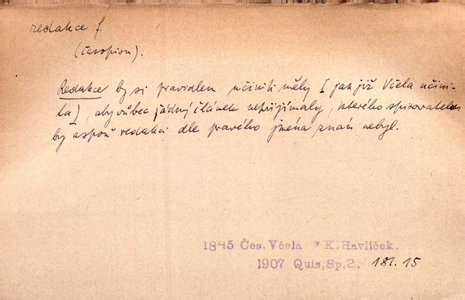 redakce f.
(časopisu).
Redakce by si pravidlem učiniti měly [jak již Včela učini-
la], aby vůbec žádný článek nepřijímaly, kterého spisovatel
by aspoň redakci dle pravého jména znám nebyl.
1845 Čes. Včela K. Havlíček.
1907 Quis, Sp. 2, 181.15